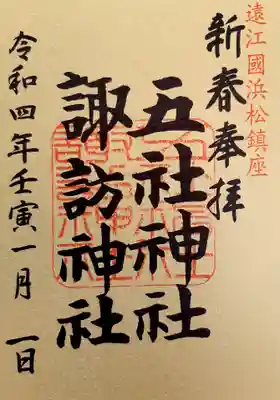 遠江國浜松鎮座
新春奉拝
五社神社
諏訪神社
令和四年壬寅一月 一日